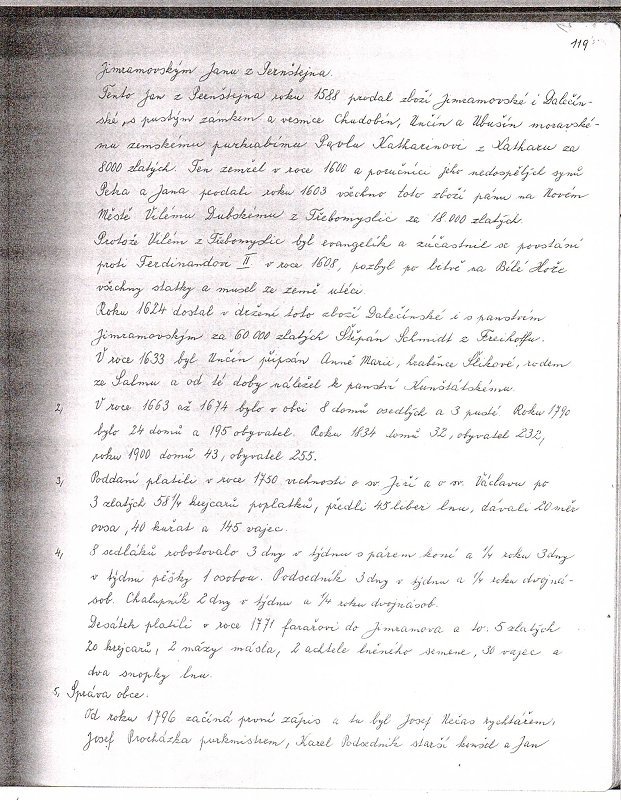 119
Jimramovským Janu z Pernštejna.
Tento Jan z Pernštejna roku 1588 prodal zboží Jimramovské i Dalečín-
ské, s pustým zámkem a vesnice Chudobín, Unčín a Ubušín moravské-
mu zemskému purkrabímu Pavlu Katharinovi z Katharu za
8000 zlatých. Ten zemřel v roce 1600 a poručníci jeho nedospělých synů
Petra a Jana prodali roku 1603 všechno toto zboží pánu na Novém
Městě Vilému Dubskému z Třebomyslic za 18.000 zlatých.
Protože Vilém z Třebomyslic byl evangelík a zúčastnil se povstání
proti Ferdinandovi II v roce 1608, pozbyl po bitvě na Bílé Hoře
všechny statky a musel ze země utéci.
Roku 1624 dostal v držení toto zboží Dalečínské i s panstvím
Jimramovským za 60 000 zlatých Štěpán Schmidt z Freihoffu.
V roce 1633 byl Unčín připsán Anně Marii, hraběnce Šlikové, rodem
ze Salmu a od té doby náležel k panství Kunštátskému.
2, V roce 1663 až 1674 bylo v obci 8 domů osedlých a 3 pusté. Roku 1790
bylo 24 domů a 195 obyvatel. Roku 1834 domů 32, obyvatel 232,
roku 1900 domů 43, obyvatel 255.
3, Poddaní platili v roce 1750 vrchnosti o sv. Jiří a o sv. Václavu po
3 zlatých 58 1/4 krejcarů poplatků, předli 45 liber lnu, dávali 20 měr
ovsa, 40 kuřat a 145 vajec.
4, 8 sedláků robotovalo 3 dny v týdnu s párem koní a 1/4 roku 3 dny
v týdnu pěšky 1 osobou. Podsedník 3 dny v týdnu a 1/4 roku dvojná-
sob. Chalupník 2 dny v týdnu a 1/4 roku dvojnásob.
Desátek platili v roce 1771 farářovi do Jimramova a to: 5 zlatých
20 krejcarů, 2 mázy másla, 2 achtele lněného semene, 30 vajec a
dva snopky lnu.
5, Správa obce.
Od roku 1796 začíná první zápis a tu byl Josef Nečas rychtářem,
Josef Procházka purkmistrem, Karel Podsedník starší konšel a Jan